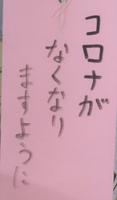 コロナが
なくなり
ますように